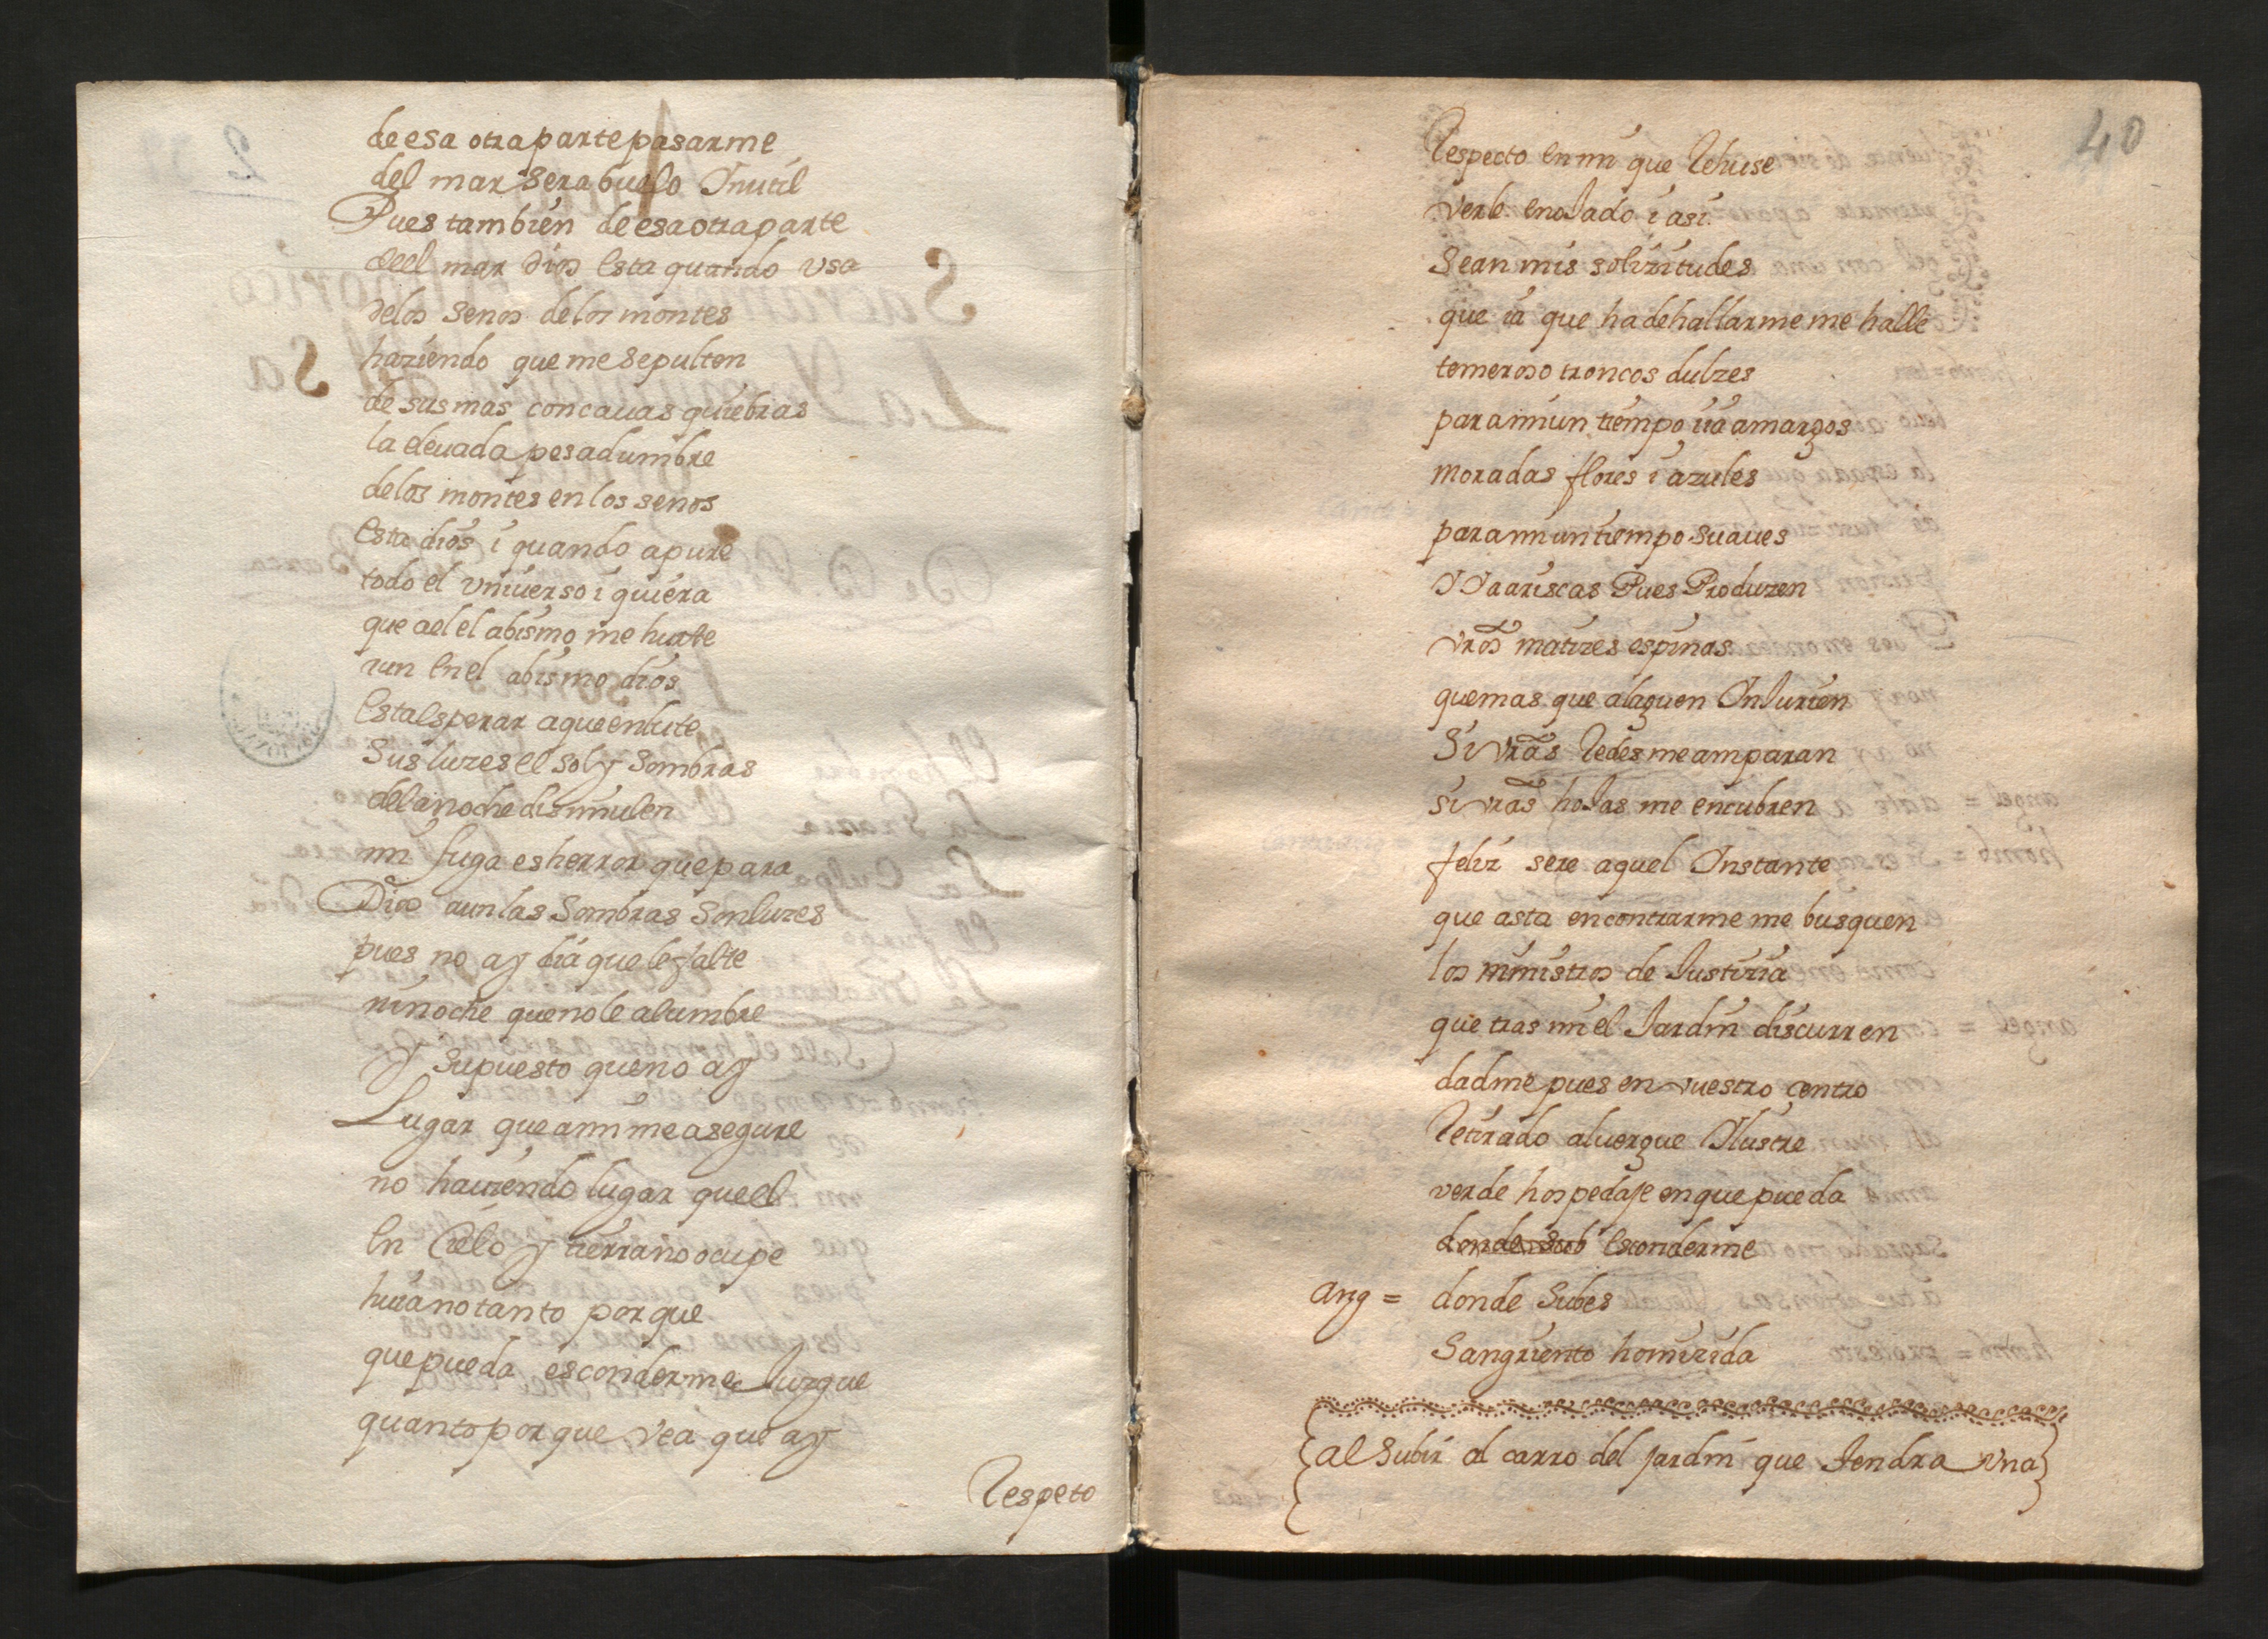 de esa otra parte pasarme
del mar sera buelo Inutil
Pues tambien de esa otra parte
deel mar dios esta quando vsa
delos senos de los montes
haziendo que me sepulten
de sus mas concauas quiebras
la eleuada pesadumbre
delos montes en los senos
esta dios i quando apure
todo el vniuerso i quiera
que ael el abismo me hurte
aun en el abismo dios
esta esperar a que enlute
sus luzes el sol y sombras
dela noche disimulen
mi fuga es herror que para
Dios aun las sombras son luzes
pues no ay dia que le falte
ni noche que no le alumbre
y supuesto que no ay
Lugar que a mi me asegure
no hauiendo lugar que el
en Cielo y tierra no ocupe
huia no tanto porque
que pueda esconderme Juzgue
quanto porque vea que ay
Respeto
40
Respecto en mi que Rehuse
verle enoJado i asi
Sean mis solizitudes
que ia que ha de hallarme me halle
temeroso troncos dulzes
para mi un tiempo iia amargos
moradas flores i azules
para mi un tiempo suaues
I Ia ariscas Pues Produzen
vros matizes espinas
que mas que alaguen InJurien
Si vras Redes me amparan
si vras hoJas me encubren
feliz sere aquel Instante
que asta encontrarme me busquen
los ministros de Justizia
que tras mi el Jardin discurren
dadme pues en vuestro çentro
Retirado aluergue Ilustre
verde hospedaje en que pueda
donde sub esconderme
Ang = donde subes
Sangriento homizida
al subir al carro del jardin que tendra vna